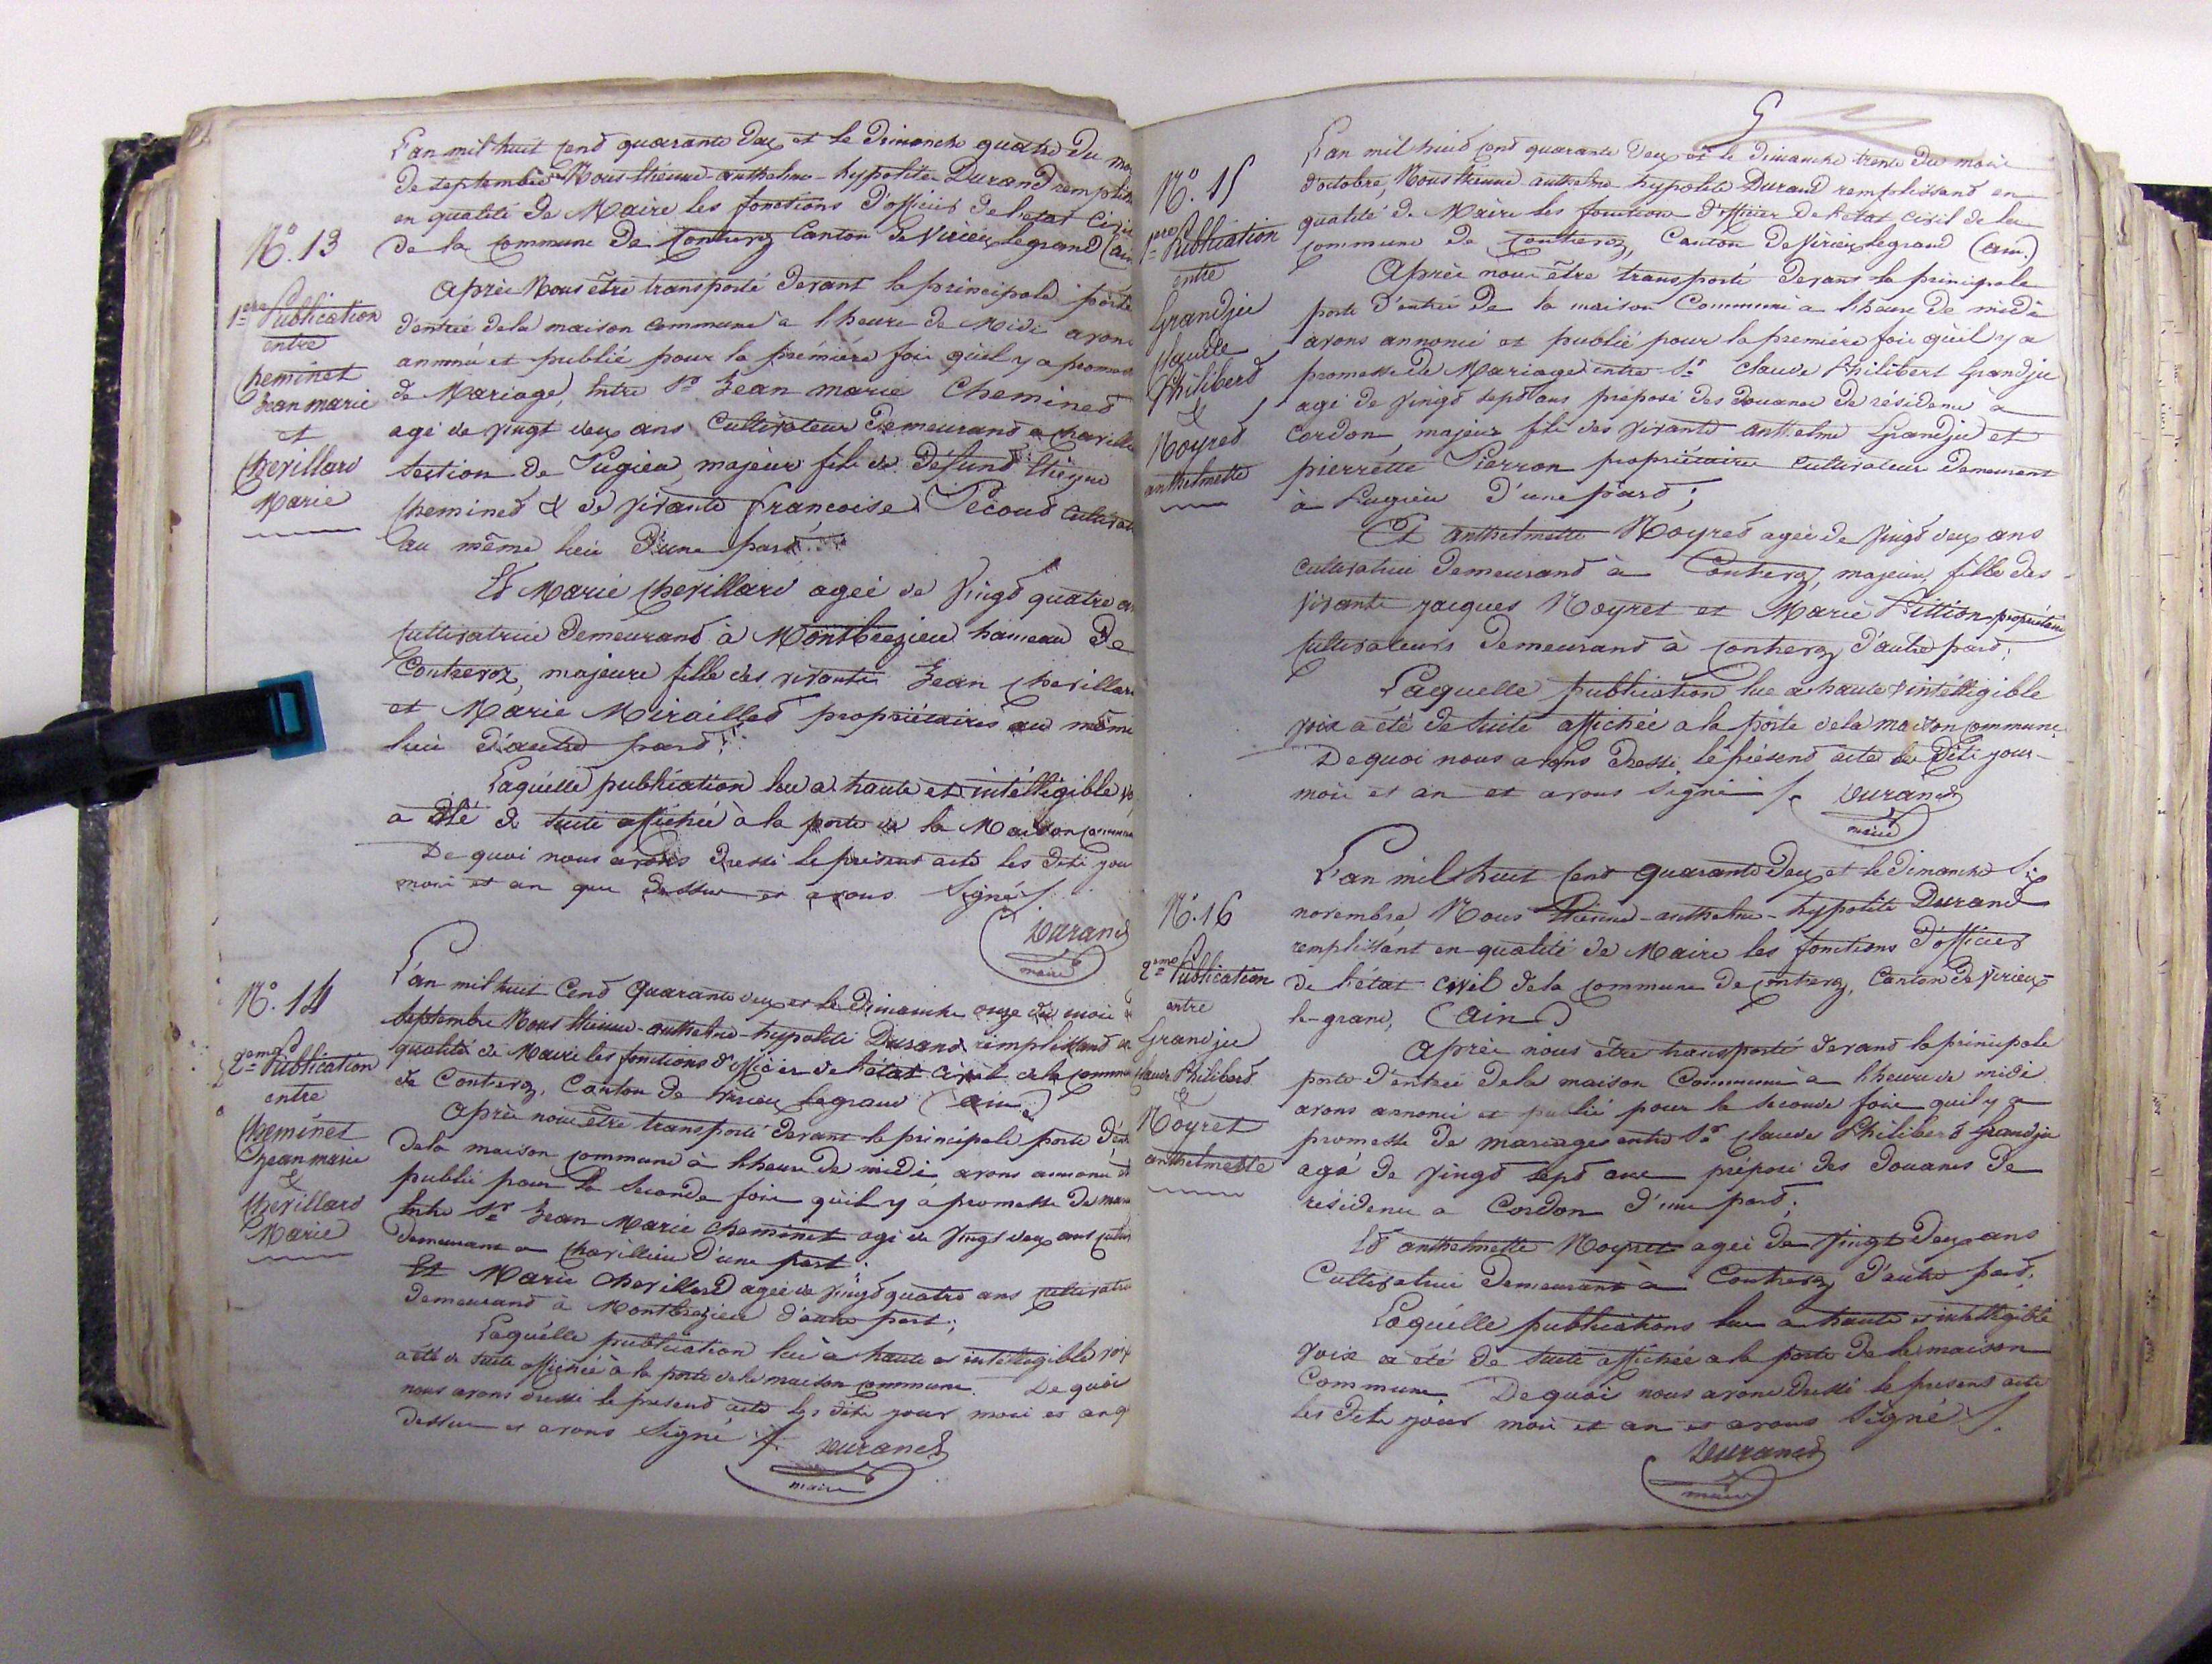 L'an mil huit cent quarante deux et le dimanche quatre du
de septembre Nous Etienne-anthelme-hypolite Durand
en qualité de Maire les fonctions d'officier de l'etat Civil
de la Commune de Contrevoz Canton de Virieux legrand (ain
Nº. 13
Après Nous être transporté devant la principale porte
1ere Publication
entre
Cheminet
Jean marie
et
Chevillard
Marie
d'entrée dela maison commune a l'heure de Midi avons
annoncé et publié pour la première fois qu'il y a
de Mariage, entre Sr. Jean marie Cheminet
agé de vingt deux ans Cultivateur Demeurant a
section de Pugieu, majeur fils de Défunt
Cheminet & de vivante francoise Pecoud
au même lieu D'une part,
Et Marie Chevillard agée de Vingt quatre
Cultivatrice Demeurant à Montbrezieu hameau De
Contrevoz, majeure fille des vivants Jean
et Marie Miraillet propriétaires au même
lieu d'autre part;
Laquelle publication lue a haute et intélligible
a été de suite affichée à la porte de la Maison
De quoi nous avons dressé le présent acte les dits
mois et an que dessus et avons Signé /.
Durand
maire
Nº. 14
L'an mil huit Cent Quarante deux et le Dimanche onze du mois
septembre Nous Etienne-anthelme-hypolite Durand remplissant
qualité de Maire les fonctions d'officier de l'état civil de la
de Contrevoz, Canton de Virieux legrand (ain)
2eme Publication
entre
Cheminet
Jean marie
&
Chevillard
Marie
Après nous être transporté devant la principale porte
dela maison commune à l'heure de midi, avons annoncé et
publié pour la Seconde fois qu'il y a promesse de
entre Sr Jean Marie Cheminet agé de Vingt deux ans
demeurant a D'une part.
Et Marie Chevillard agée de Vingt quatre ans
demeurant à Montbrezieu d'autre part;
Laquélle publication lue à haute et intélligible voix
a été de suite affichée à la porte de la maison commune. De quoi
nous avons dressé le present acte les dits jour mois et an
dessus et avons Signé /. Durand
maire
L'an mil huit cent quarante deux et le Dimanche trente du mois
Nº. 15
d'octobre, Nous Etienne-anthelme-hypolite Durand remplissant en
qualité de Maire les fonctions d'officier de l'etat civil de la
commune de Contrevoz, Canton de Virieux legrand (ain.)
1ere Publication
entre
Grandju
Claude
Philibert
&
Noyret
anthelmette
Après nous être transporté devant la principale
porte d'entrée de la maison Commune a l'heure de midi
avons annoncé et publié pour la première fois qu'il y a
promesse de Mariage entre Sr Claude Philibert Grandju
agé de vingt sept ans préposé des Douanes de résidence à
Cordon majeur fils des vivants Anthelme Grandju et
pierrette Pierron propriétaires Cultivateurs Demeurant
à Pugieu D'une part;
Et anthelmette Noyret agée de Vingt deux ans
cultivatrice Demeurant à Contrevoz, majeure fille des
vivants Jacques Noyret et Marie Pittion propriétaires
Cultivateurs demeurant à Contrevoz d'autre part;
Laquelle publication lue a haute & intélligible
voix a été de suite affichée a la porte dela maison commune.
De quoi nous avons dressé le présent acte les dits jour
mois et an et avons Signé /. Durand
maire
L'an mil huit Cent Quarante Deux et le Dimanche Six
Nº. 16
novembre, Nous Etienne-anthelme-hypolite Durand
remplissant en qualité de Maire les fonctions d'officier
de l'état civil dela commune de Contrevoz, Canton de Virieux-
le-grand, (Ain)
2eme Publication
entre
Grandju
Claude Philibert
&
Noyret
anthelmette
Après nous être transporté devant la principale
porte d'entrée dela maison Commune a l'heure de midi
avons annoncé et publié pour la seconde fois qu'il y a
promesse de mariage entre Sr Claude Philibert Grandju
agé de Vingt sept ans préposé des Douanes de
résidence a Cordon d'une part;
Et anthelmette Noyret agée de Vingt Deux ans
Cultivatrice Demeurant à Contrevoz d'autre part;
Laquélle publications lue a haute & intélligible
voix a été de suite affichée a la porte de la maison
Commune De quoi nous avons dressé le present acte
les dits jour mois et an et avons Signé /.
Durand
maire